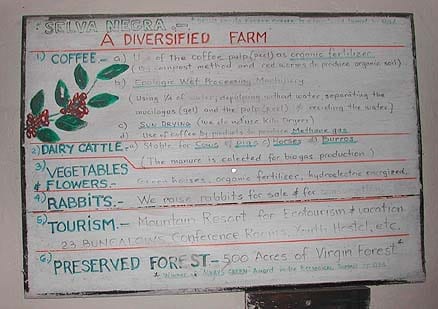 SELVA NEGRA.-
A DIVERSIFIED FARM
1) COFFEE.- a) Use of the coffee pulp (peel) as organic fertilizer
(by compost method and red worms to produce organic soil)
b) Ecologic Wet Processing Machinery
(Using 1/4 of water, depulping without water, separating the
mucilagos (gel) and the pulp (peel) & residing the water)
c) SUN DRYING (we do not use Kiln Dryers)
d) Use of coffee by products to produce Methane gas
2) DAIRY CATTLE.- a) Stable for Cows b) Pigs c) Horses d) Burros.
(The manure is collected for biogas production)
3) VEGETABLES
& FLOWERS.- Green houses, organic fertilizer, hydroelectric energized,
4) RABBITS.- We raise rabbits for sale & for
5) TOURISM.- Mountain Resort for Ecotourism & vacation
23 BUNGALOWS Conference Rooms, Youth Hostel, etc.
6) PRESERVED FOREST- 500 Acres of Virgin Forest"